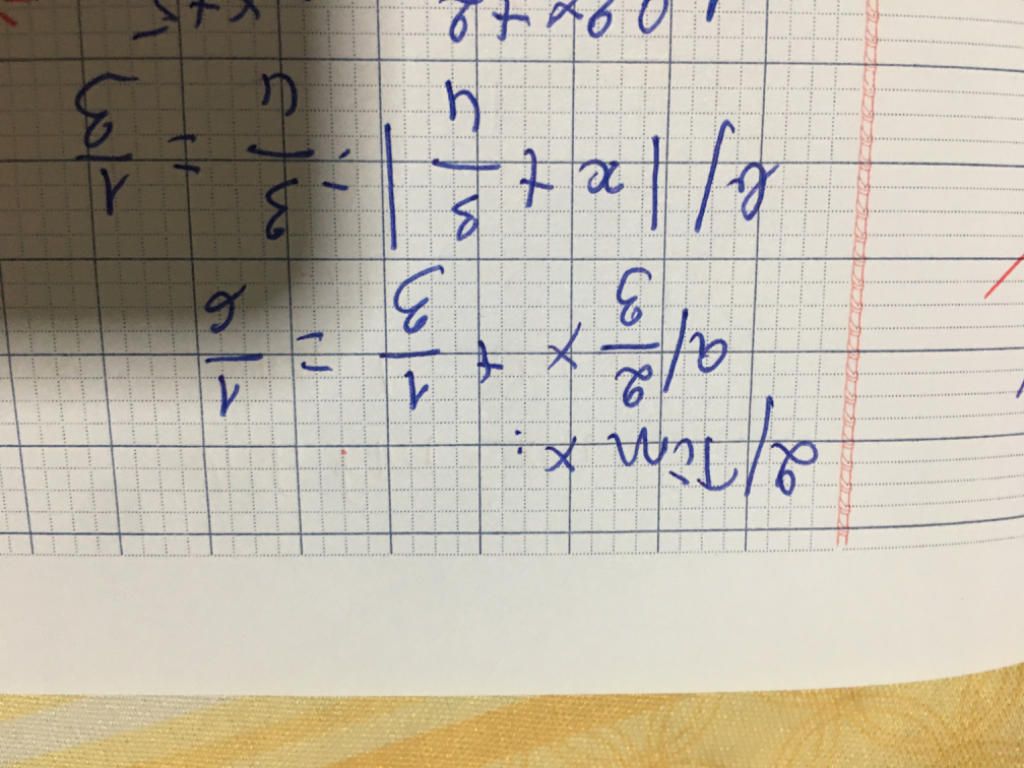 2/ Tìm x:
a/ 2/3 x + 1/3 = 1/6
b/ |x + 3/4| - 3/4 = 1/3